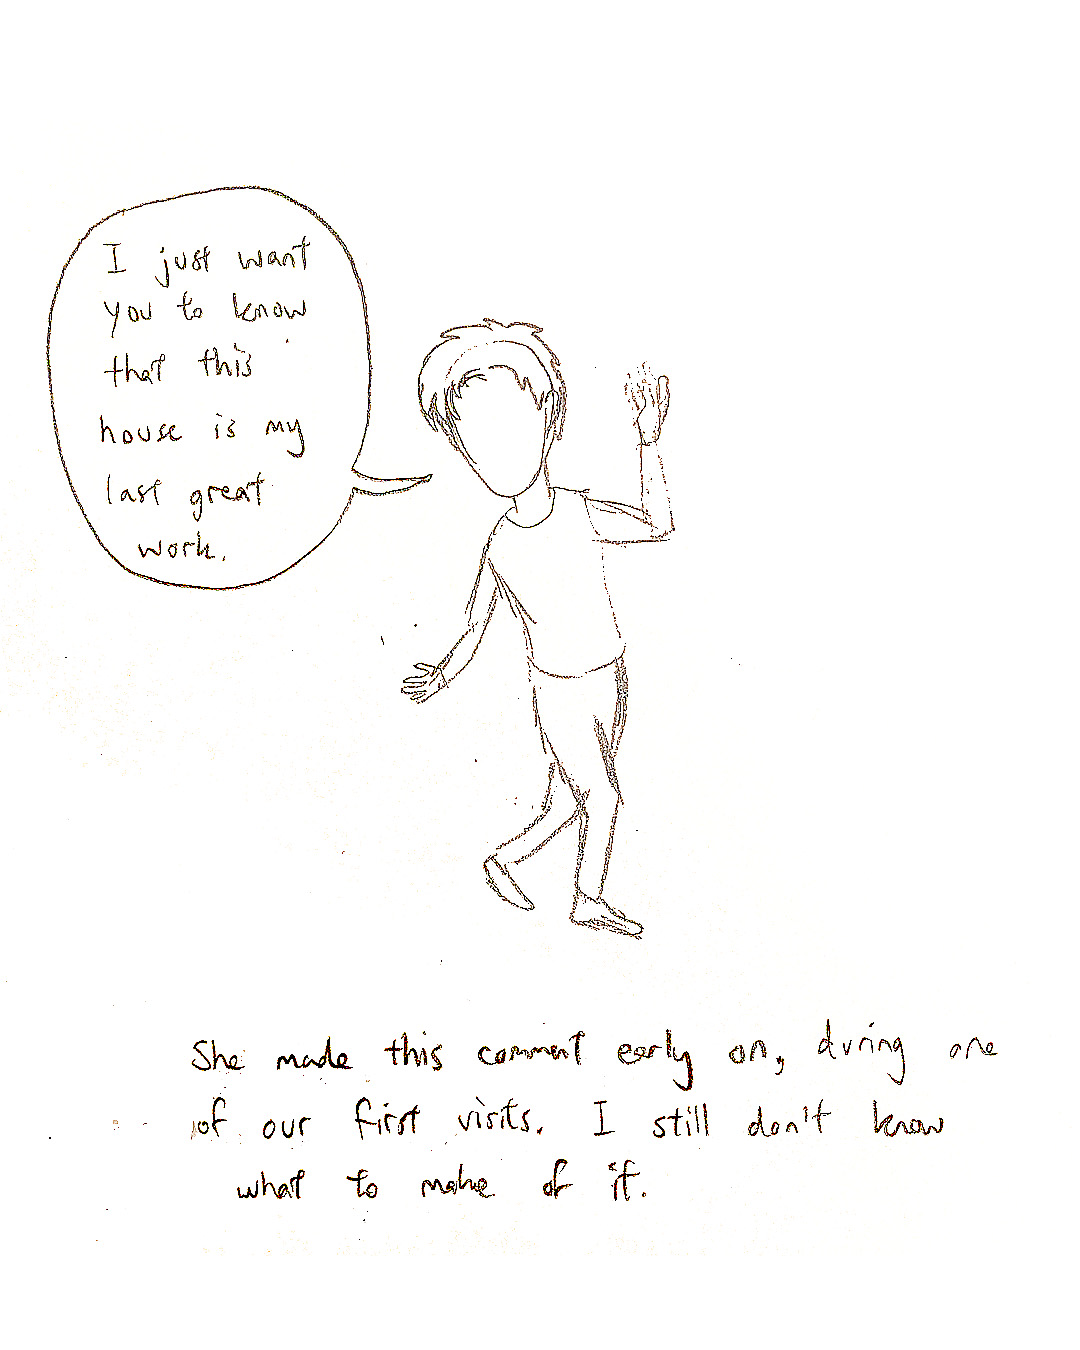 I just want
you to know
that this
house is my
last great
work.
She made this comment early on, during one
of our first visits. I still don't know
what to make of it.